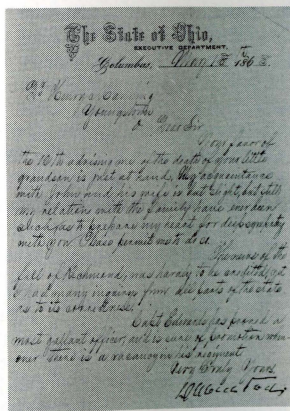 The State of Ohio,
EXECUTIVE DEPARTMENT.
Columbus, 186
Dr Henry Manning
Youngstown
O Dear Sir
Your favor of
the 10th advising me of the death of your little
grandson is just at hand. My acquaintance
with John and his wife is but slight, but still
my relations with the family have ever been
such as to prepare my heart for deep sympathy
with you. Please permit me to do so.
Rumors of the
fall of Richmond, was hardly to be credited, yet
I had many inquiries from all parts of the state
as to its correctness.
Capt Edwards has proved a
most gallant officer, and is sure of promotion when
ever there is a vacancy in his regiment
Very Truly Yours
David Tod